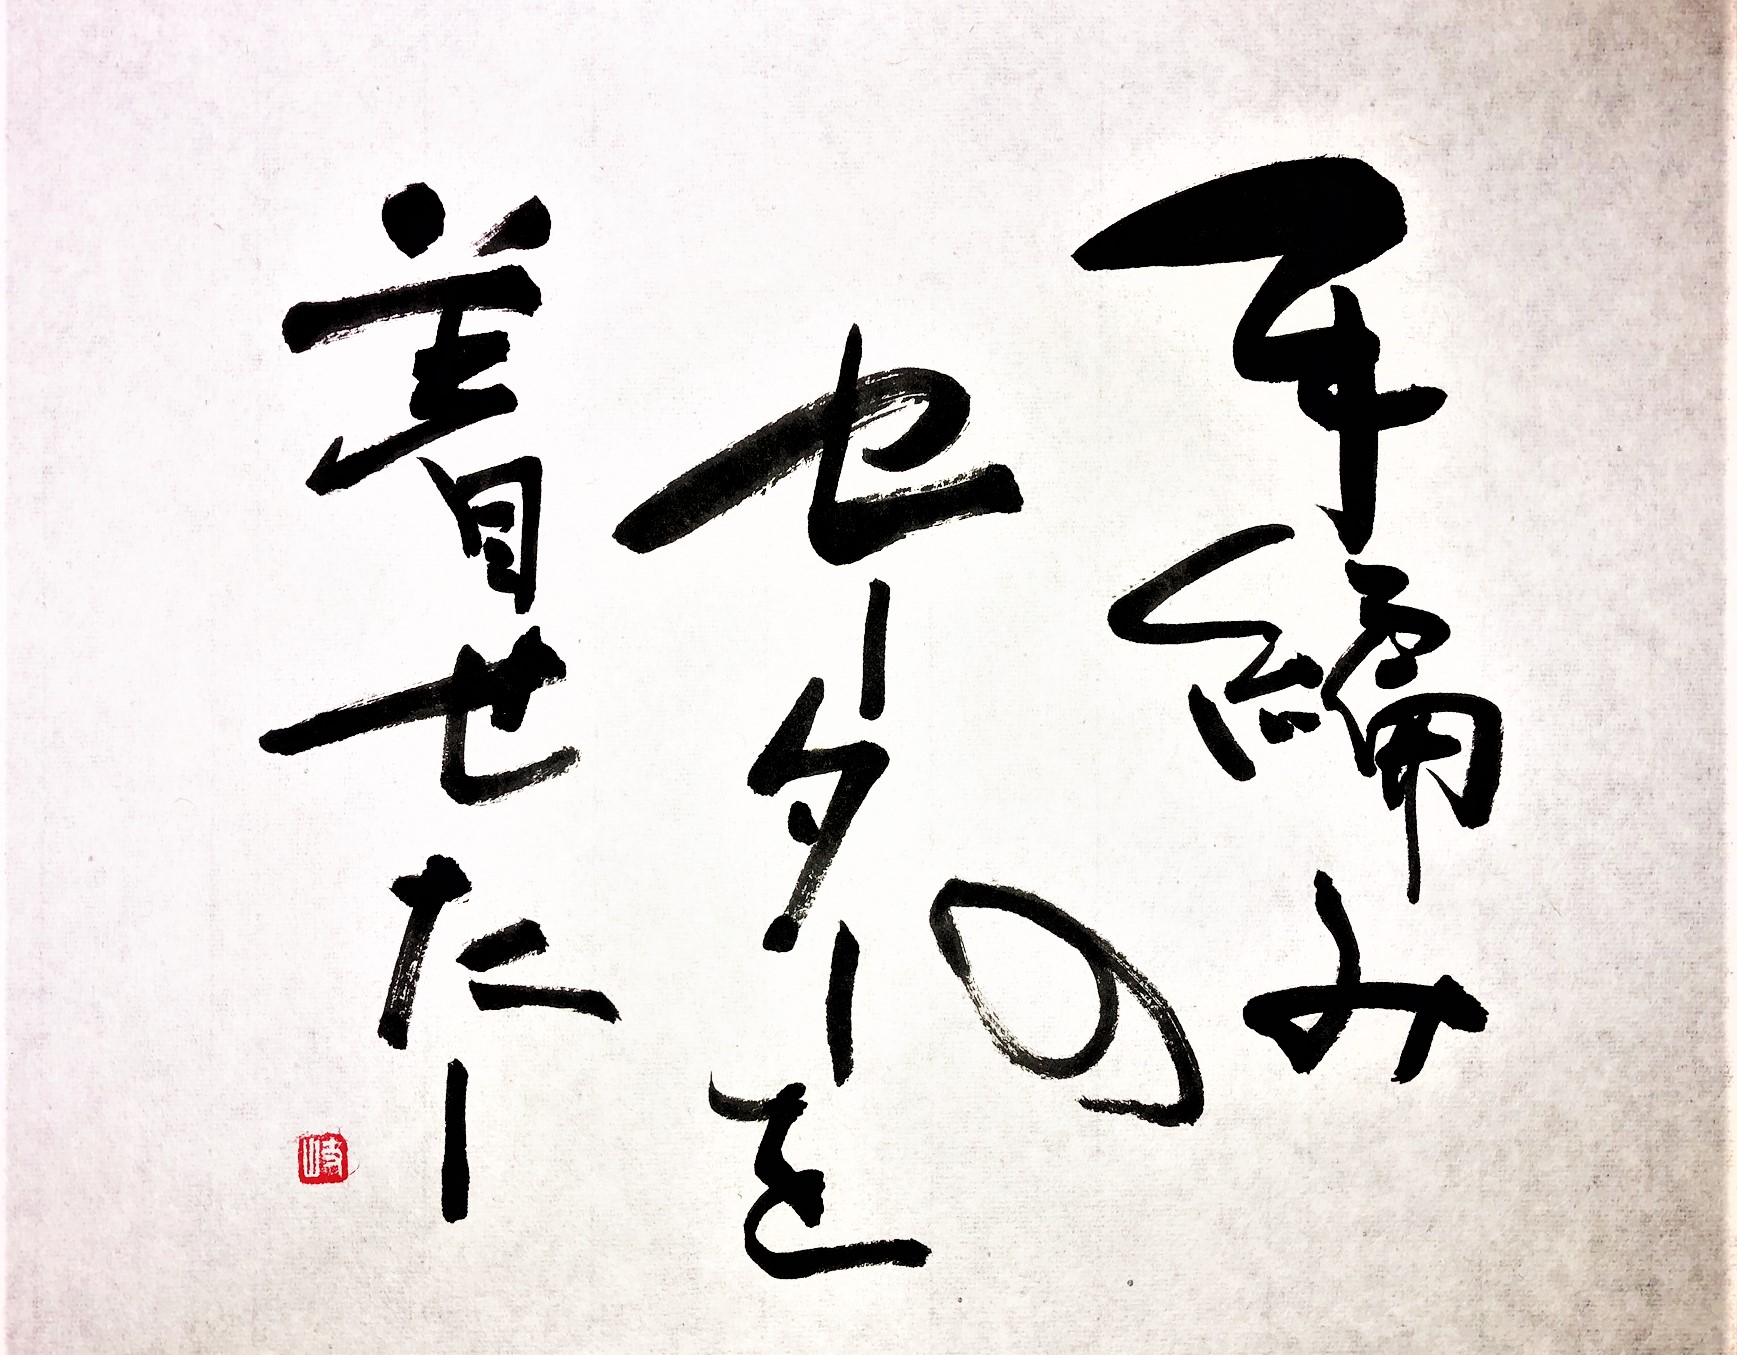 手編みの
セーターを
着せたー
岐